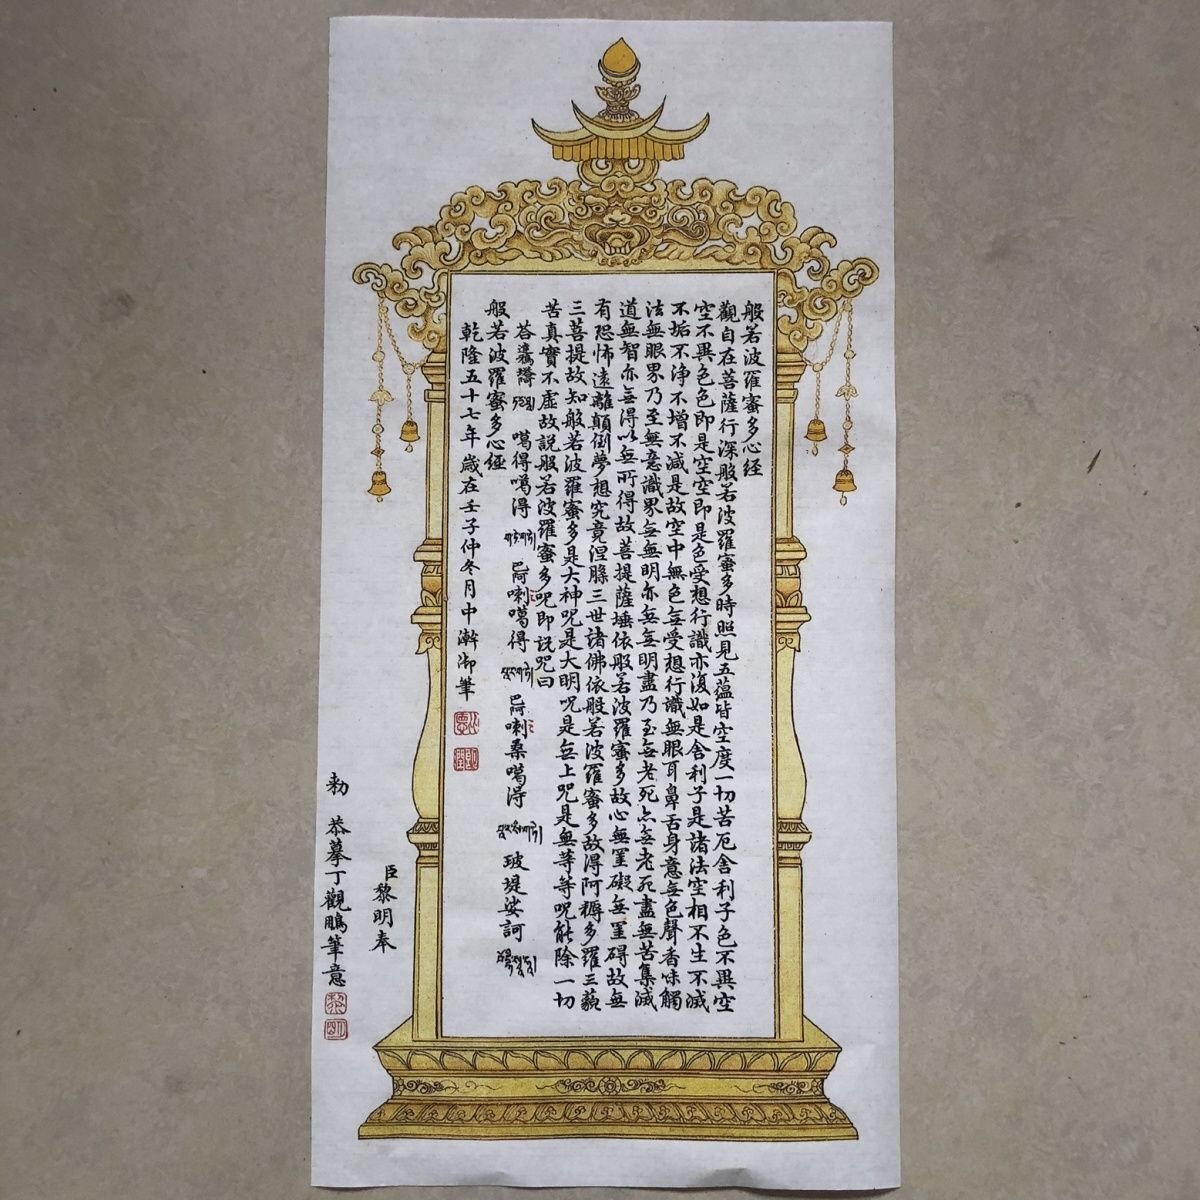 般若波羅蜜多心経
觀自在菩薩行深般若波羅蜜多時照見五蘊皆空度一切苦厄舍利子色不異空
空不異色色即是空空即是色受想行識亦復如是舍利子是諸法空相不生不滅
不垢不浄不增不減是故空中無色無受想行識無眼耳鼻舌身意無色聲香味觸
法無眼界乃至無意識界無無明亦無無明盡乃至無老死亦無老死盡無苦集滅
道無智亦無得以無所得故菩提薩埵依般若波羅蜜多故心無罣礙無罣碍故無
有恐怖遠離顛倒夢想究竟涅槃三世諸佛依般若波羅蜜多故得阿耨多羅三藐
三菩提故知般若波羅蜜多是大神呪是大明呪是無上呪是無等等呪能除一切
苦真實不虛故説般若波羅蜜多呪即説呪曰
噶得噶得 巴阿喇噶得 巴阿喇桑噶得 玻堤娑訶
般若波羅蜜多心経
乾隆五十七年歲在壬子仲冬月中澣御筆
臣黎明奉
勅 恭摹丁觀鵬筆意